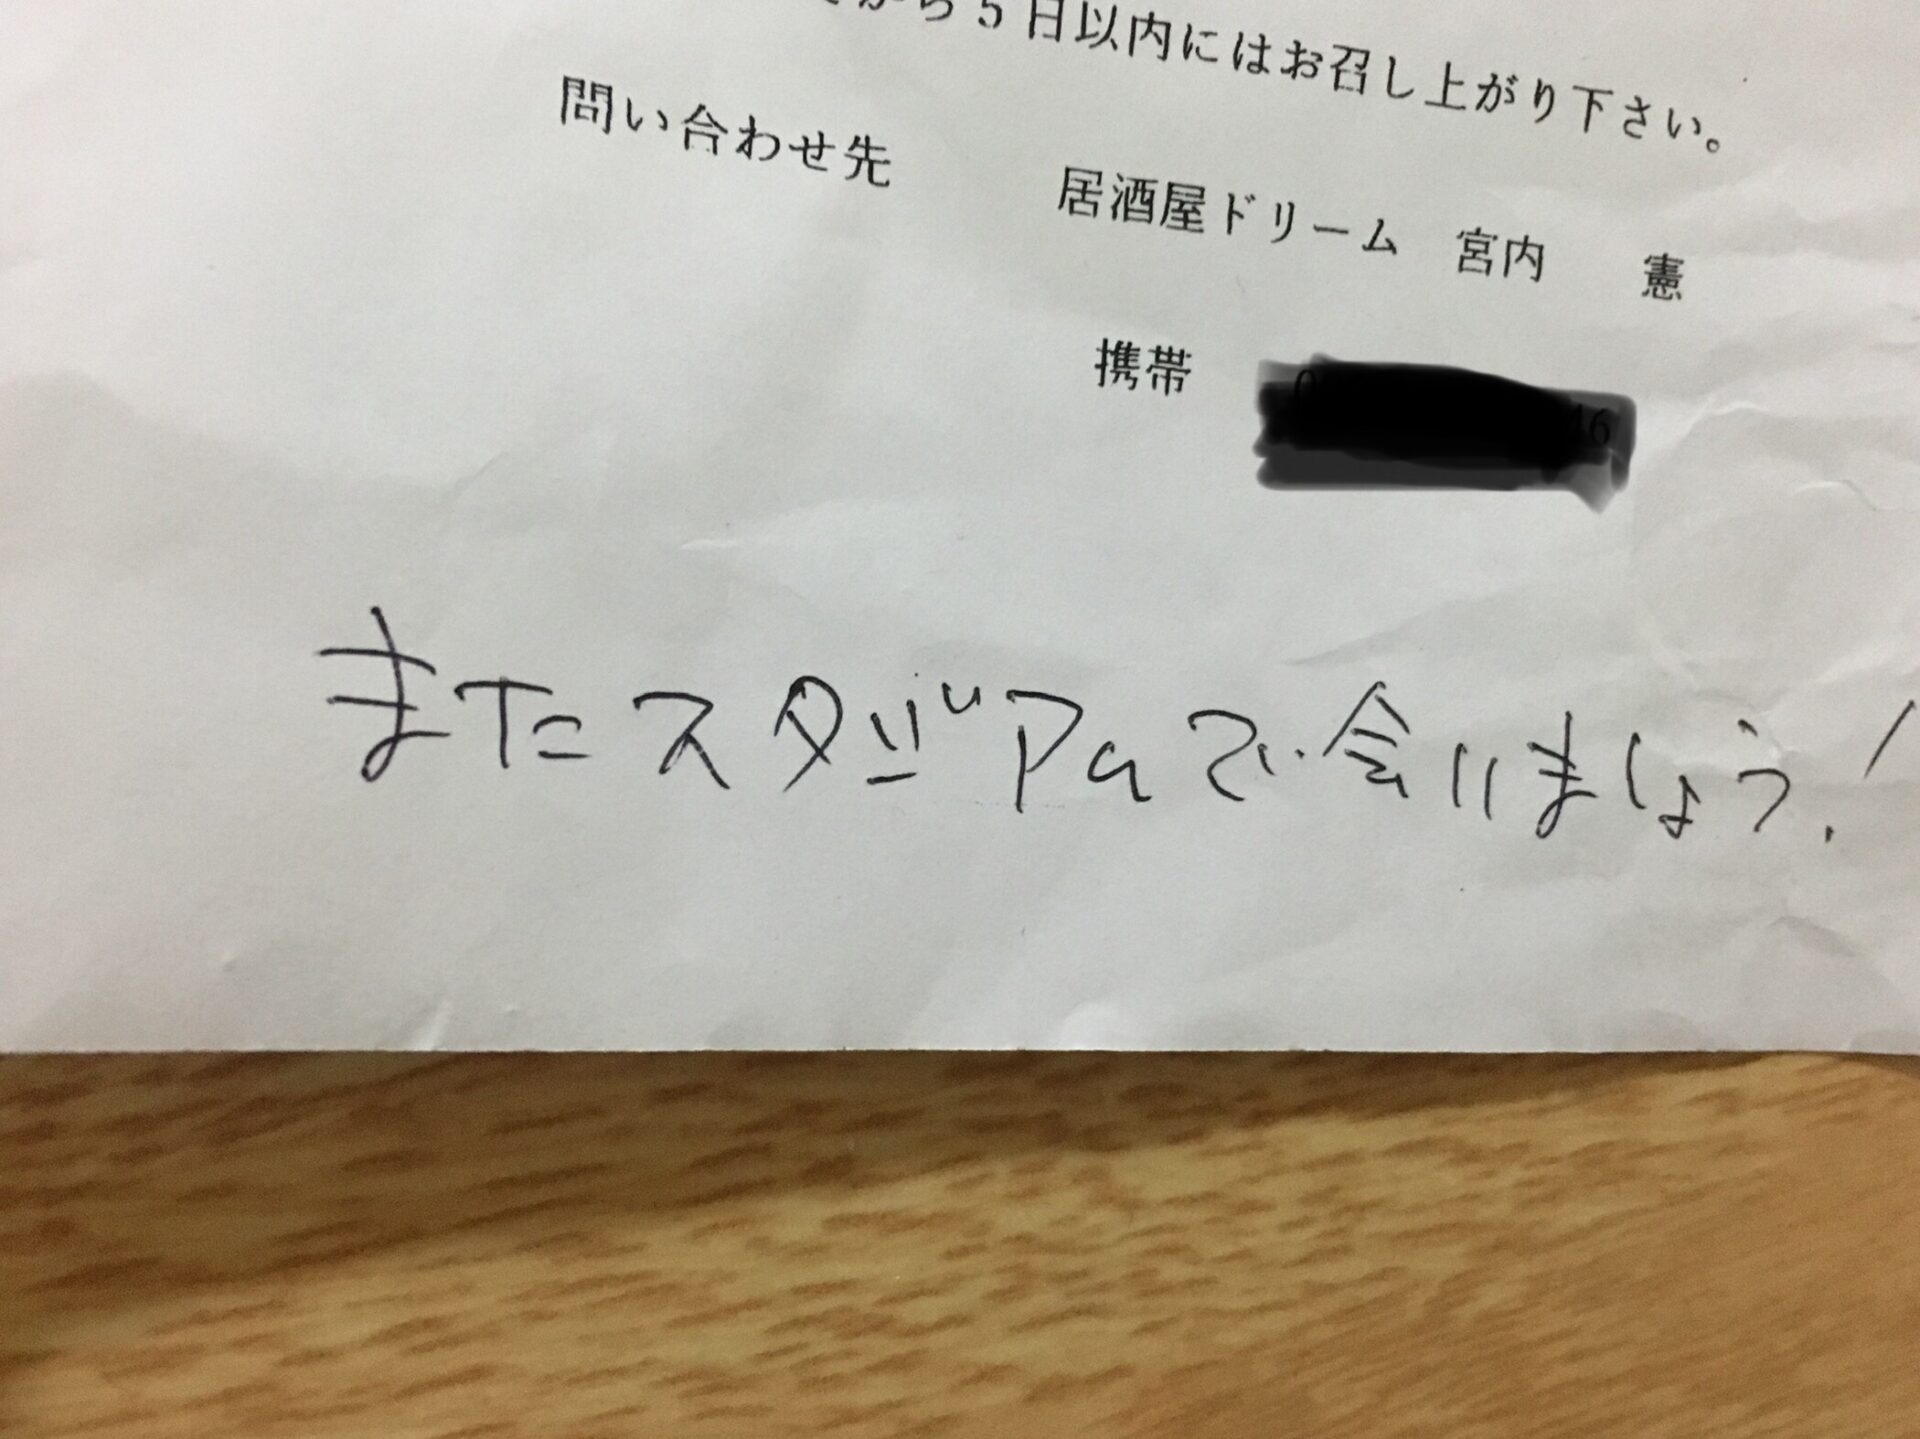 から5日以内にはお召し上がり下さい。
問い合わせ先
居酒屋ドリーム 宮内 憲
携帯
またスタジアムで会いましょう!